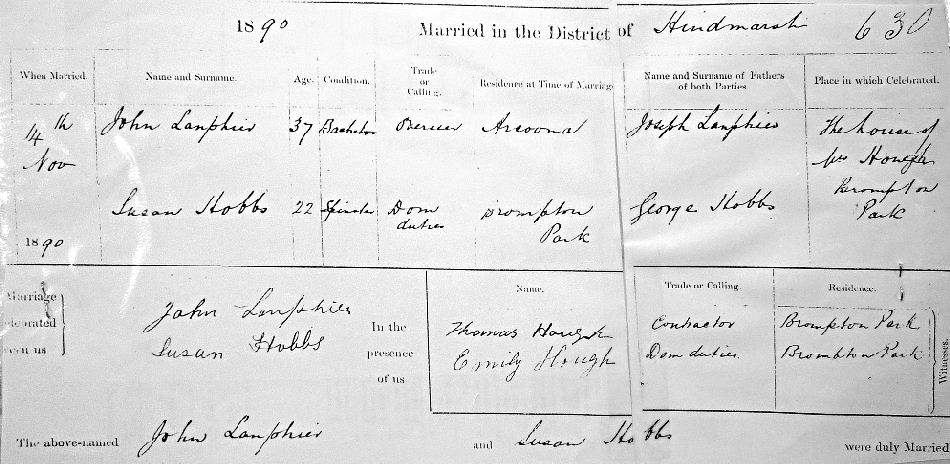 1890 Married in the District of Hindmarsh 630
When Married. Name and Surname. Age. Condition. Trade or Calling. Residence at Time of Marriage Name and Surname of Fathers of both Parties Place in which Celebrated.
14th Nov John Lanphier 37 Bachelor Joseph Lanphier The house of Mrs Hough Brompton Park
Susan Hobbs 22 Spinster Dom duties Brompton Park George Hobbs
1890
Marriage
Name. Trade or Calling. Residence.
John Lanphier In the Thomas Hough Contractor Brompton Park
Susan Hobbs presence Emily Hough Dom duties Brombton Park
of us
Witnesses.
The above-named John Lanphier and Susan Hobbs were duly Married